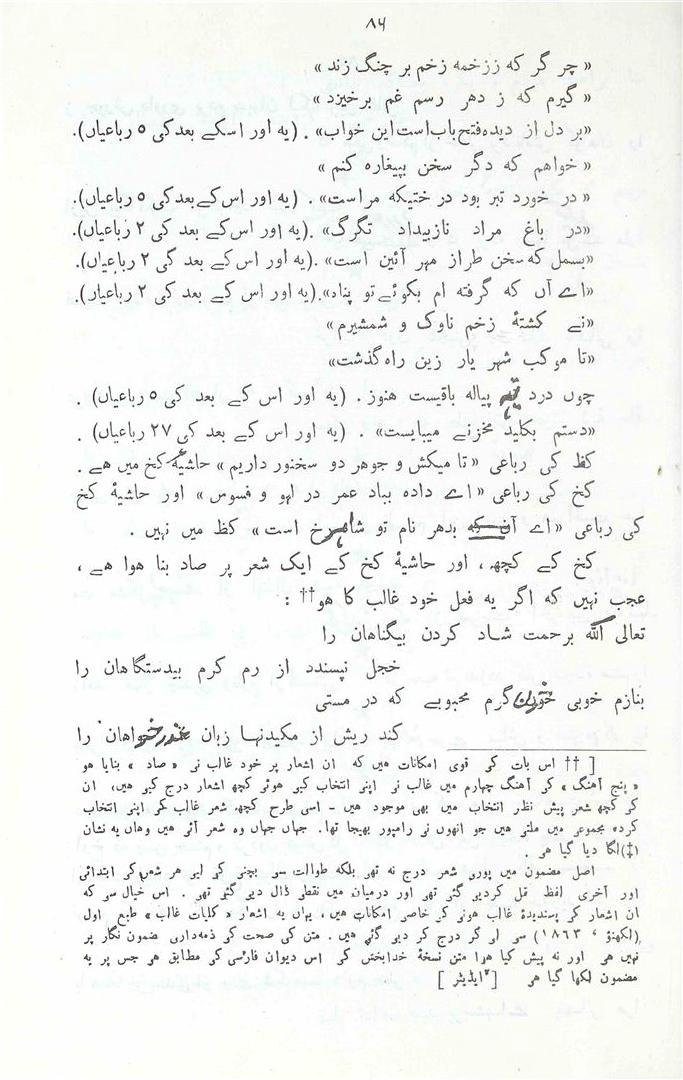 ۸۴
« چر گر که ززخمه زخم بر چنگ زند »
« گیرم که ز دهر رسم غم برخیزد »
«بر دل از دیده فتح باب است این خواب» . (یه اور اسکے بعد کی ۵ رباعیاں).
« خواهم که دگر سخن بپیغاره کنم »
« در خورد تبر بود در ختیکه مراست» . (یه اور اس کے بعد کی ۵ رباعیاں).
«در باغ مراد ما زبیداد تگرگ» .(یه اور اس کے بعد کی ۲ رباعیاں).
«بسمل که سخن طراز مهر آئین است» .(یه اور اس کے بعد کی ۲ رباعیاں).
«اے آں که گرفته ام بکوئے تو پناه».(یه اور اس کے بعد کی ۲ رباعیاں).
«نے کشتۀ زخم ناوک و شمشیرم »
«تا موکب شهر یار زین راه گذشت»
چوں درد ته پیاله باقیست هنوز . (یه اور اس کے بعد کی ۵ رباعیاں) .
«دستم بکلید مخزنے میبایست» . (یه اور اس کے بعد کی ۲۷ رباعیاں) .
کظ کی رباعی «تا میکش و جوهر دو سخنور داریم» حاشیۀ کخ میں هے .
کخ کی رباعی «اے داده بباد عمر در لهو و فسوس» اور حاشیۀ کخ
کی رباعی «اے آنکه بدهر نام تو شاهرخ است» کظ میں نہیں .
کخ کے کچھ، اور حاشیۀ کخ کے ایک شعر پر صاد بنا هوا هے ،
عجب نہیں که اگر یه فعل خود غالب کا هو†† :
تعالی الله برحمت شاد کردن بیگناهان را
خجل نپسندد از رم کرم بیدستگاهان را
بنازم خوبی خونگرم محبوبے که در مستی
کند ریش از مکیدنها زبان عذرخواهان را
[ †† اس بات کی قوی امکانات هیں که ان اشعار پر خود غالب نی « صاد » بنایا هو
« پنج آهنگ » کی آهنگ چهارم میں غالب نی اپنی انتخاب کیی هوئی کچھ اشعار درج کیی هیں، ان
کی کچھ شعر پیش نظر انتخاب میں بھی موجود هیں - اسی طرح کچھ شعر غالب کی اپنی انتخاب
کرده مجموعی میں ملتی هیں جو انهوں نی رامپور بھیجا تھا. جهاں جهاں وه شعر آئی هیں وهاں یه نشان
(‡) لگا دیا گیا هی .
اصل مضمون میں پوری شعر درج نه تھی بلکه طوالت سی بچنی کی لیی هر شعر کی ابتدائی
اور آخری لفظ نقل کردیی گئی تھی اور درمیان میں نقطی ڈال دیی گئی تھی . اس خیال سی که
ان اشعار کی پسندیدۀ غالب هونی کی خاصی امکانات هیں، یہاں یه اشعار « کلیات غالب » طبع اول
(لکھنؤ ، ۱۸۶۳) سی لی کر درج کر دیی گئی هیں . متن کی صحت کی ذمه‌داری مضمون نگار پر
نہیں هی اور نه پیش کیا هوا متن نسخۀ خدابخش کی اس دیوان فارسی کی مطابق هی جس پر یه
مضمون لکھا گیا هی [ ایڈیٹر ]